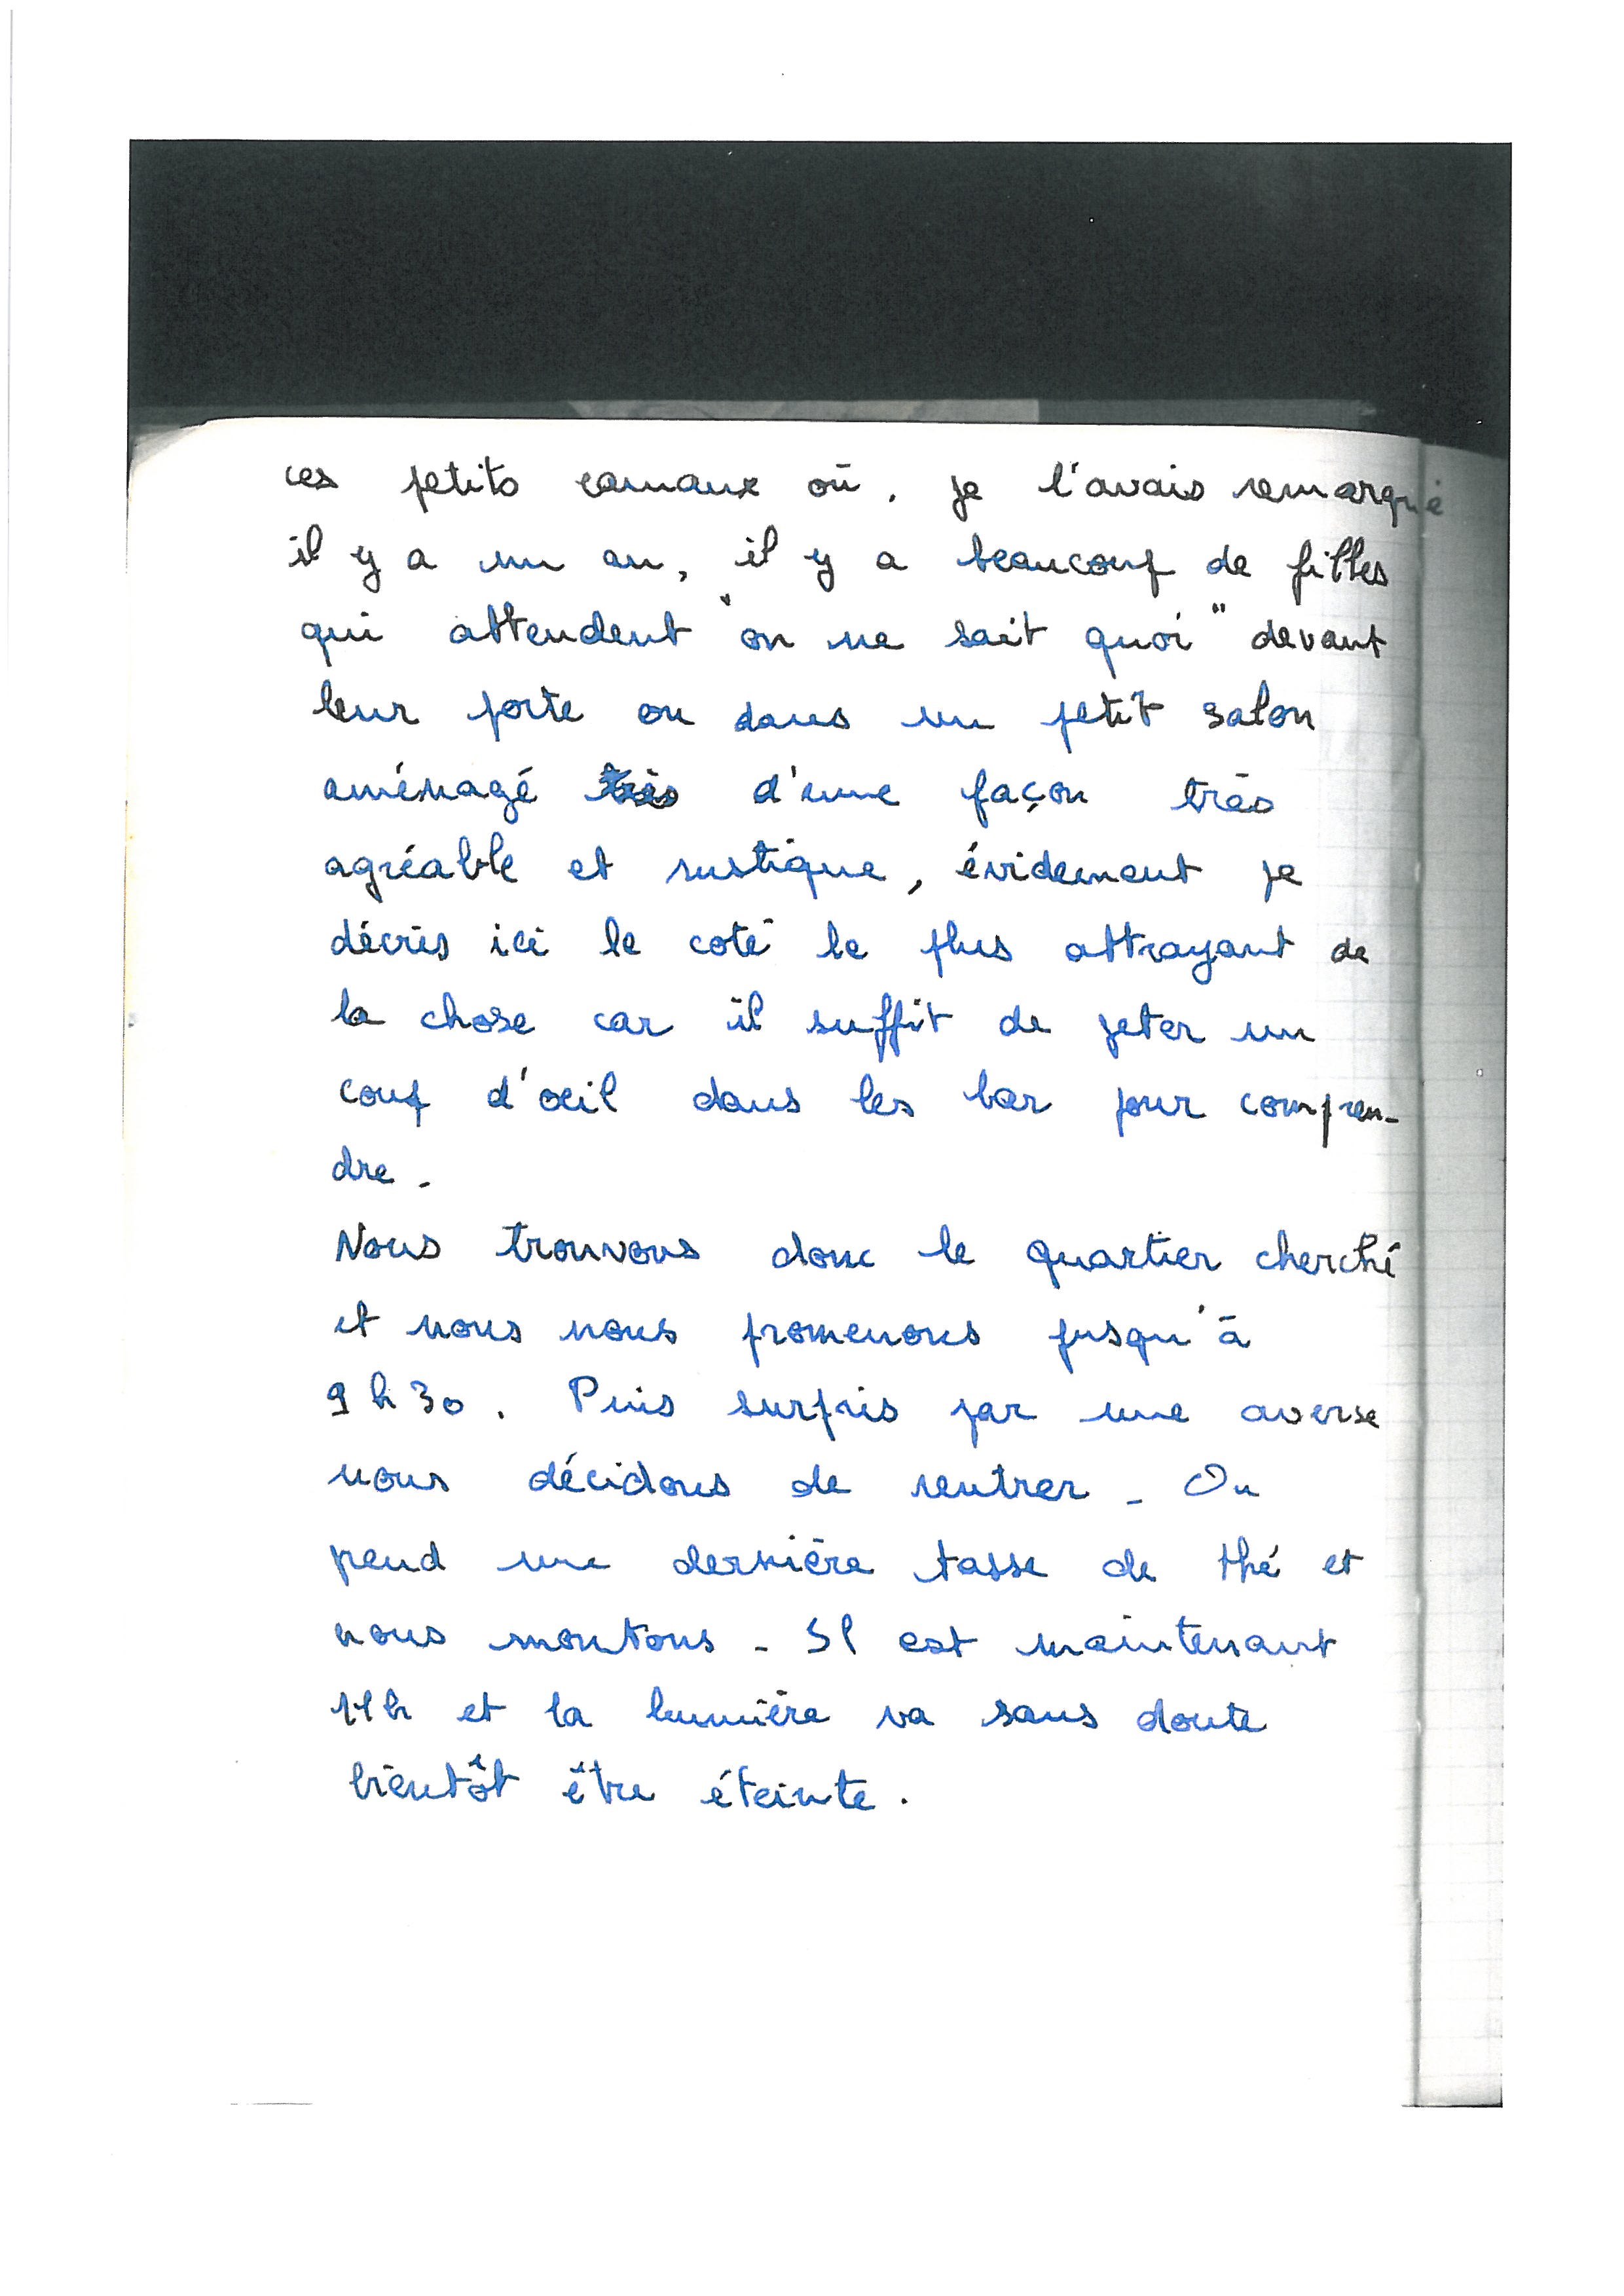 ces petits canaux où, je l'avais remarqué
il y a un an, il y a beaucoup de filles
qui attendent "on ne sait quoi" devant
leur porte ou dans un petit salon
aménagé très d'une façon très
agréable et rustique, évidemment je
décris ici le coté le plus attrayant de
la chose car il suffit de jeter un
coup d'oeil dans les bar pour compren-
dre.
Nous trouvons donc le quartier cherché
et nous nous promenons jusqu'à
9h30. Puis surpris par une averse
nous décidons de rentrer - On
pend une dernière tasse de thé et
nous montons - Il est maintenant
11h et la lumière va sans doute
bientôt être éteinte.